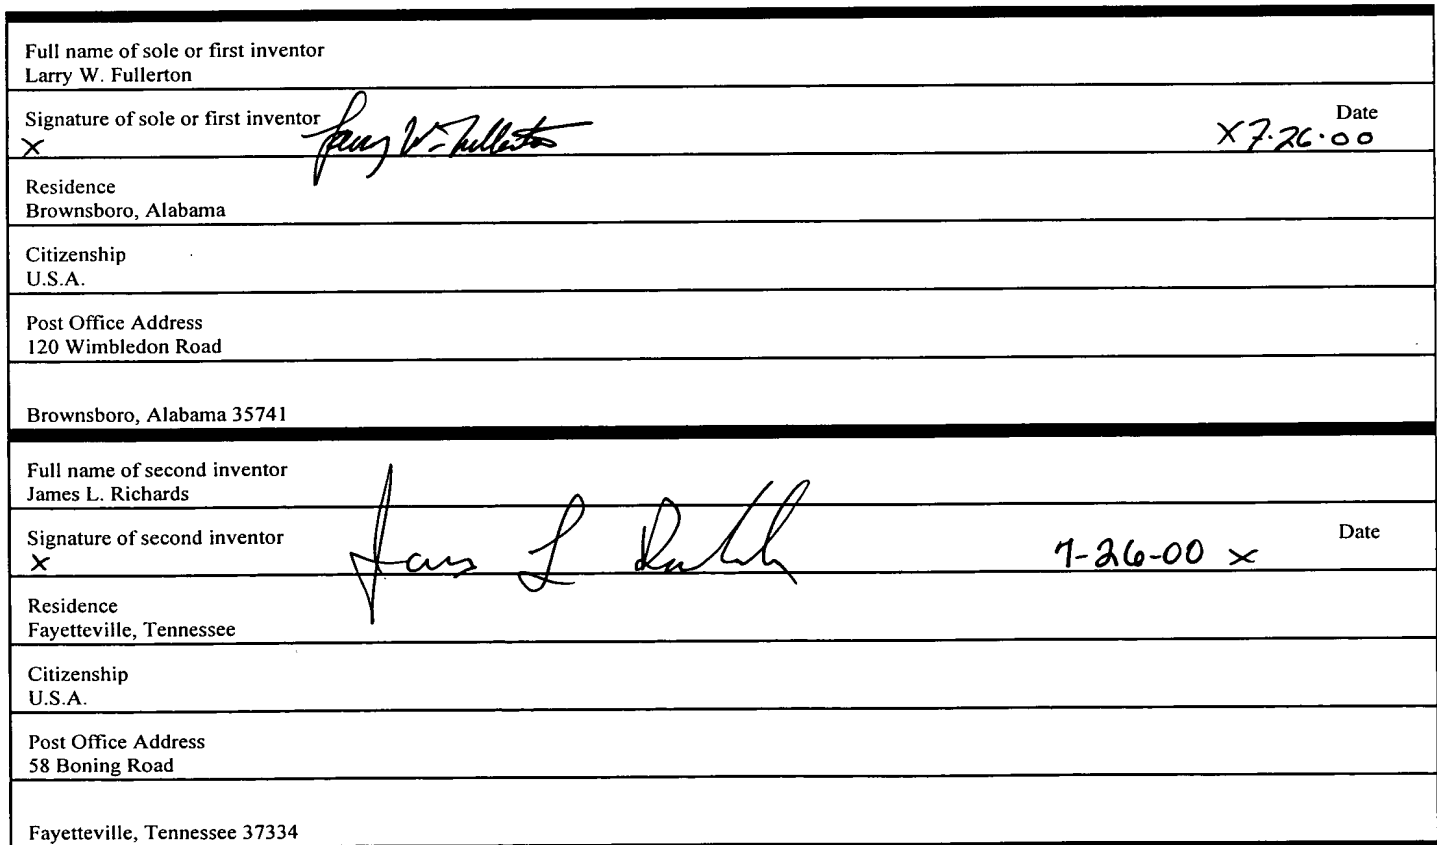 Full name of sole or first inventor
Larry W. Fullerton
Signature of sole or first inventor Larry W. Fullerton Date
X X 7·26·00
Residence
Brownsboro, Alabama
Citizenship
U.S.A.
Post Office Address
120 Wimbledon Road
Brownsboro, Alabama 35741
Full name of second inventor
James L. Richards
Signature of second inventor James L Richards Date
X 7-26-00 X
Residence
Fayetteville, Tennessee
Citizenship
U.S.A.
Post Office Address
58 Boning Road
Fayetteville, Tennessee 37334